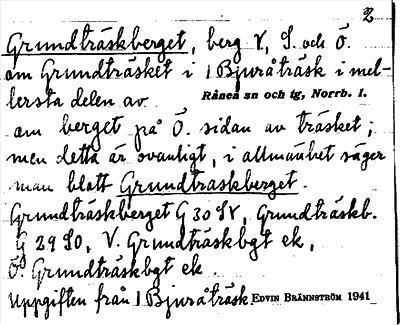 2
Grundträskberget, berg V, S. och Ö.
om Grundträsket i 1 Bjuråträsk i mel-
lersta delen av
Råneå sn och tg, Norrb. l.
om berget på Ö. sidan av träsket;
men detta är ovanligt, i allmänhet säger
man blott Grundträskberget.
Grundträskberget G 30 SV, Grundträskb.
G 29 SO, V. Grundträskbgt ek,
Ö. Grundträskbgt ek.
Uppgiften från 1 Bjuråträsk.
EDVIN BRÄNNSTRÖM 1941